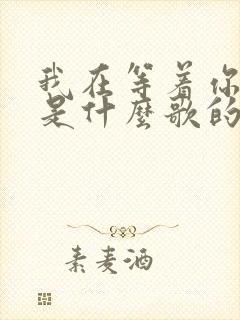 我在等着你
是什麼歌的
素麦酒